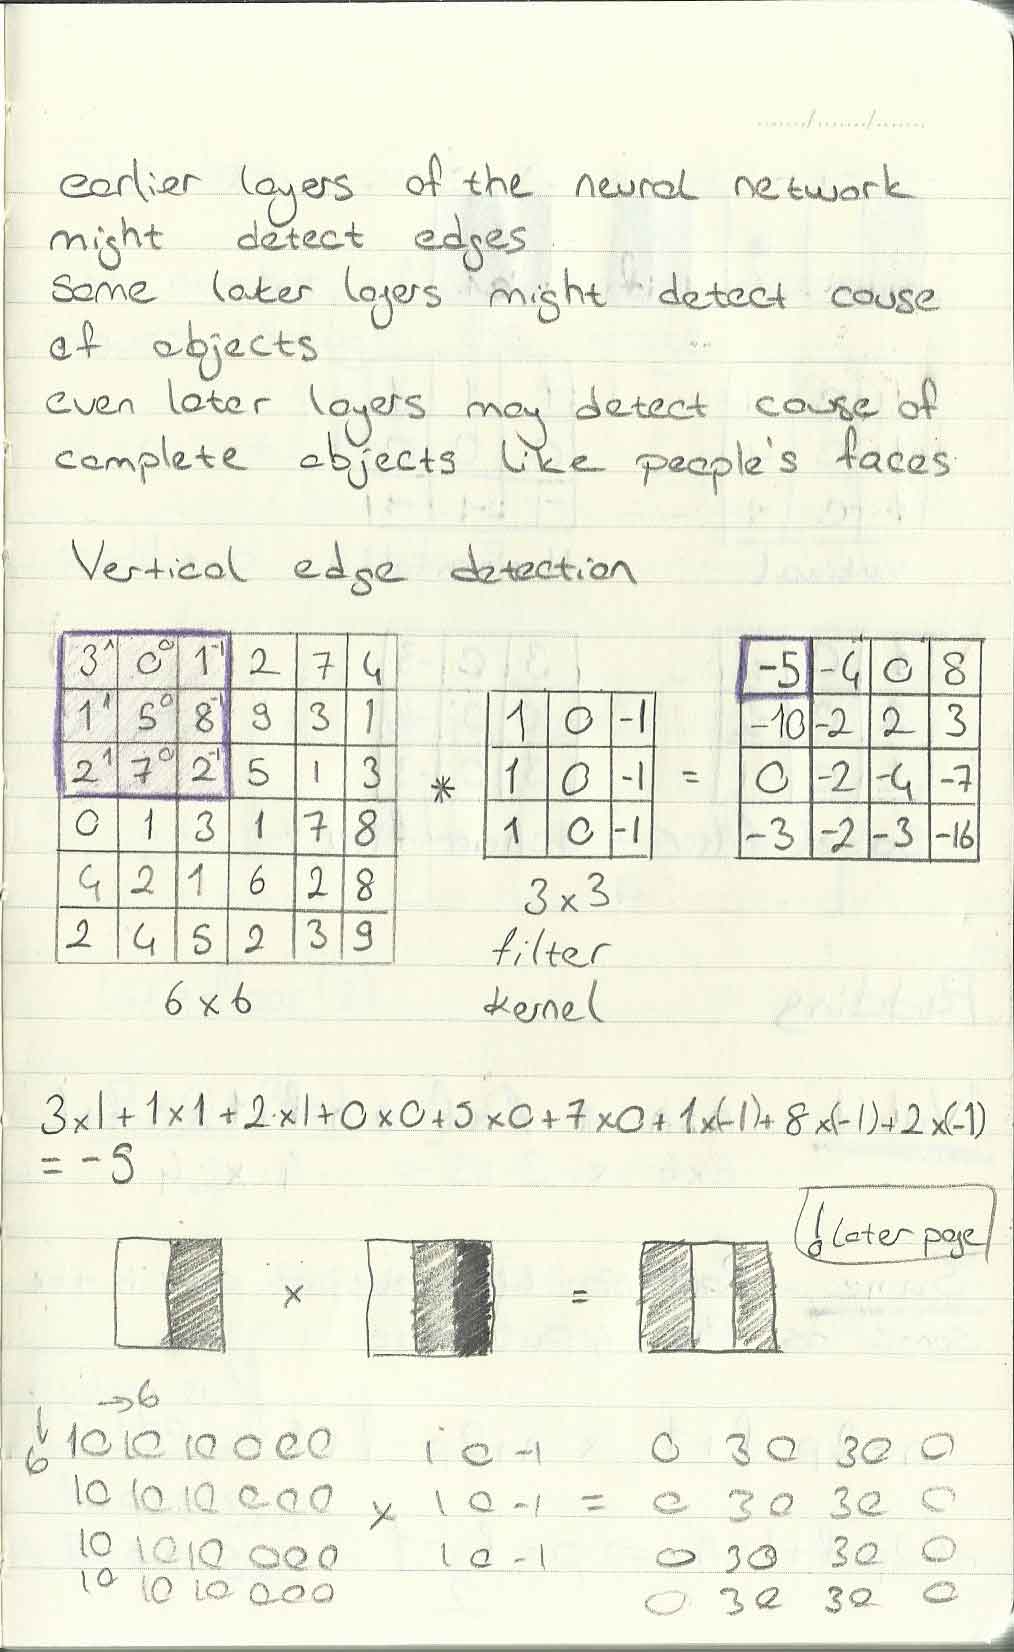 earlier layers of the neural network
might detect edges
Some later layers might detect couse
of objects
even later layers may detect couse of
complete objects like people's faces
Vertical edge detection
3¹ 0⁰ 1⁻¹ 2 7 4
1¹ 5⁰ 8⁻¹ 9 3 1
2¹ 7⁰ 2⁻¹ 5 1 3
0 1 3 1 7 8
4 2 1 6 2 8
2 4 5 2 3 9
6 x 6
*
1 0 -1
1 0 -1
1 0 -1
3 x 3
filter
kernel
=
-5 -4 0 8
-10 -2 2 3
0 -2 -4 -7
-3 -2 -3 -16
3x1 + 1x1 + 2x1 + 0x0 + 5x0 + 7x0 + 1x(-1) + 8x(-1) + 2x(-1)
= -5
! later page
x =
→6
↓6
10 10 10 0 0 0 1 0 -1 0 30 30 0
10 10 10 0 0 0 x 1 0 -1 = 0 30 30 0
10 10 10 0 0 0 1 0 -1 0 30 30 0
10 10 10 0 0 0 0 30 30 0